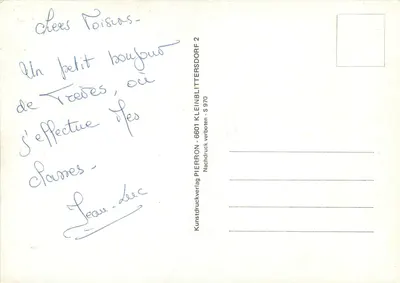 Chers Voisins-
Un petit bonjour
de Trèves, où
s'effectue mes
classes-
Jean-Luc
Kunstdruckverlag PIERRON · 6601 KLEINBLITTERSDORF 2
Nachdruck verboten - S 970